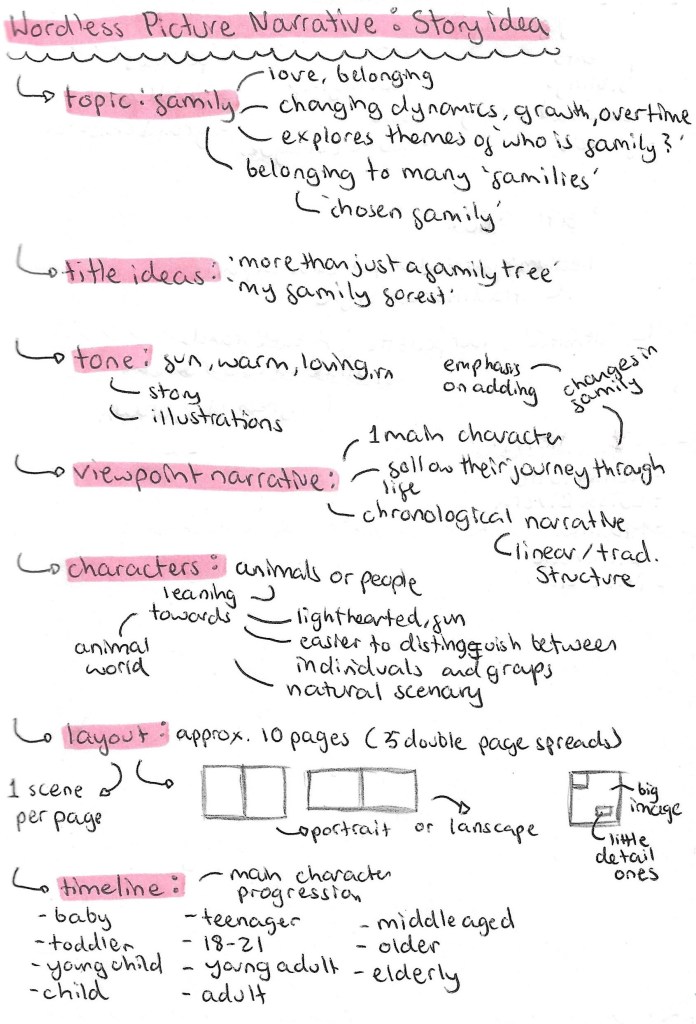 Wordless Picture Narrative : Story idea
topic : family
love, belonging
changing dynamics, growth, overtime
explores themes of 'who is family?'
belonging to many 'families'
'chosen family'
title ideas: 'more than just a family tree'
'my family forest'
tone: fun, warm, loving,
story
illustrations
emphasis on adding
changes in family
viewpoint narrative:
1 main character
follow their journey through life
chronological narrative
linear/trad. structure
characters: animals or people
leaning towards
animal world
lighthearted, fun
easier to distinguish between individuals and groups
natural scenary
layout: approx. 10 pages (5 double page spreads)
1 scene per page
portrait or lanscape
big image
little detail ones
timeline:
main character progression
- baby
- toddler
- young child
- child
- teenager
- 18-21
- young adult
- adult
- middle aged
- older
- elderly